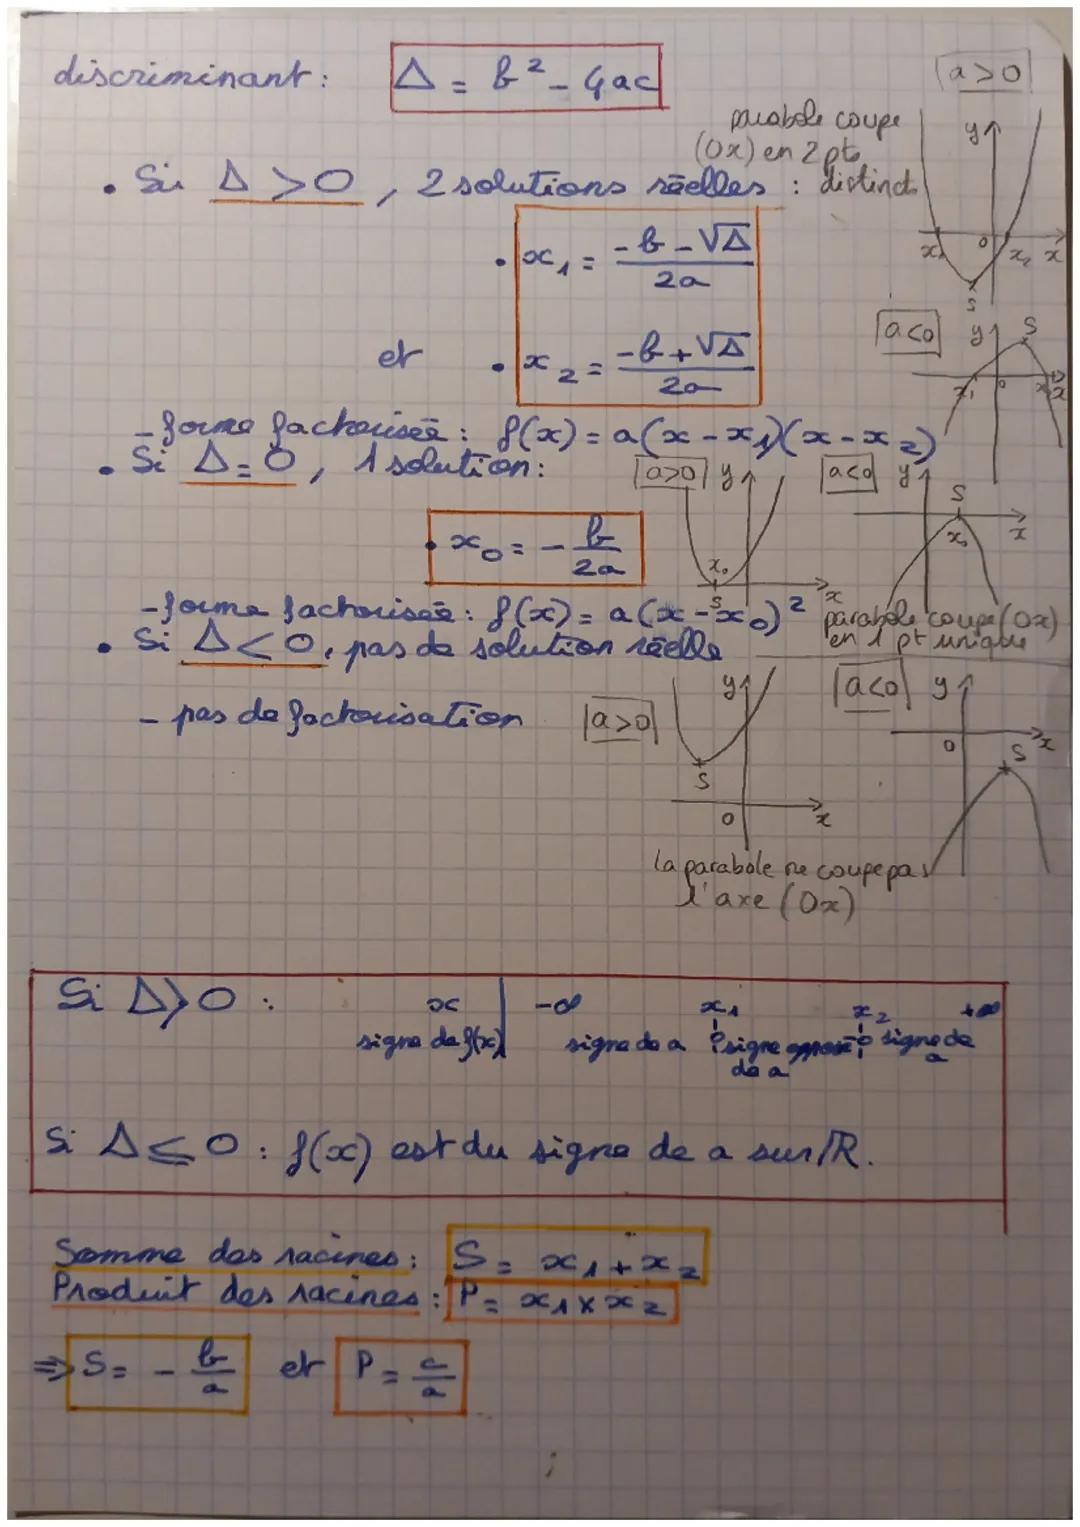 discriminant : Δ = b² - 4ac
a > 0
parabole coupe
(Ox) en 2 pts
distincts
y
x₁ 0 x₂ x
S
• Si Δ > 0, 2 solutions réelles :
• x₁ = (-b - √Δ) / 2a
a < 0
y S
x₁ 0 x₂ x
et • x₂ = (-b + √Δ) / 2a
- forme factorisée : f(x) = a(x - x₁)(x - x₂)
• Si Δ = 0, 1 solution :
a > 0 y
x₀
S x
a < 0 y
S
x₀ x
• x₀ = - b / 2a
- forme factorisée : f(x) = a(x - x₀)²
parabole coupe (Ox)
en 1 pt unique
• Si Δ < 0, pas de solution réelle
- pas de factorisation
a > 0 y
S
0 x
a < 0 y
0 S x
la parabole ne coupe pas
l'axe (Ox)
Si Δ > 0 : x | -∞ x₁ x₂ +∞
signe de f(x) | signe de a 0 signe opposé 0 signe de
de a a
Si Δ ≤ 0 : f(x) est du signe de a sur ℝ.
Somme des racines : S = x₁ + x₂
Produit des racines : P = x₁ × x₂
⇒ S = - b/a et P = c/a